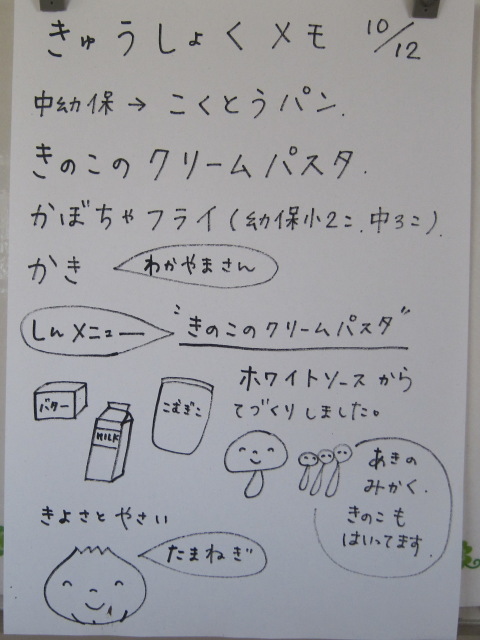 きゅうしょくメモ 10/12
中幼保→こくとうパン.
きのこのクリームパスタ.
かぼちゃフライ(幼保小2こ.中3こ).
かき わかやまさん
しんメニュー "きのこのクリームパスタ"
ホワイトソースから
てづくりしました。
バター
MILK
こむぎこ
あきの
みかく.
きのこも
はいってます.
きよさとやさい
たまねぎ